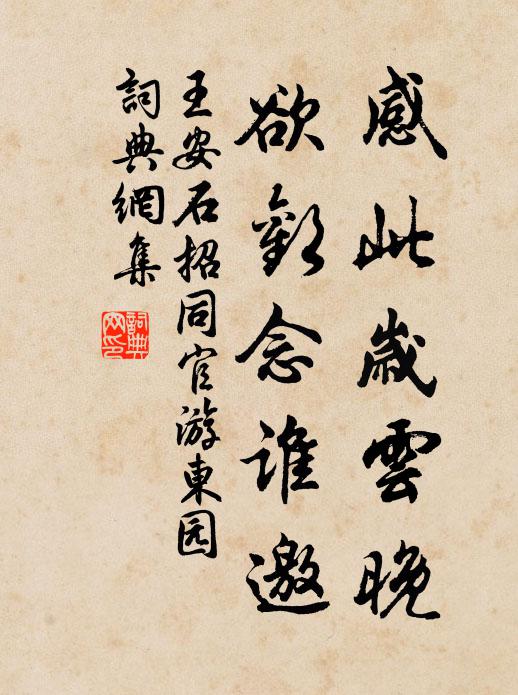 感此歲雲晚
欲歡念誰邀
王安石招同官游東园
詞典網集
詞典网印